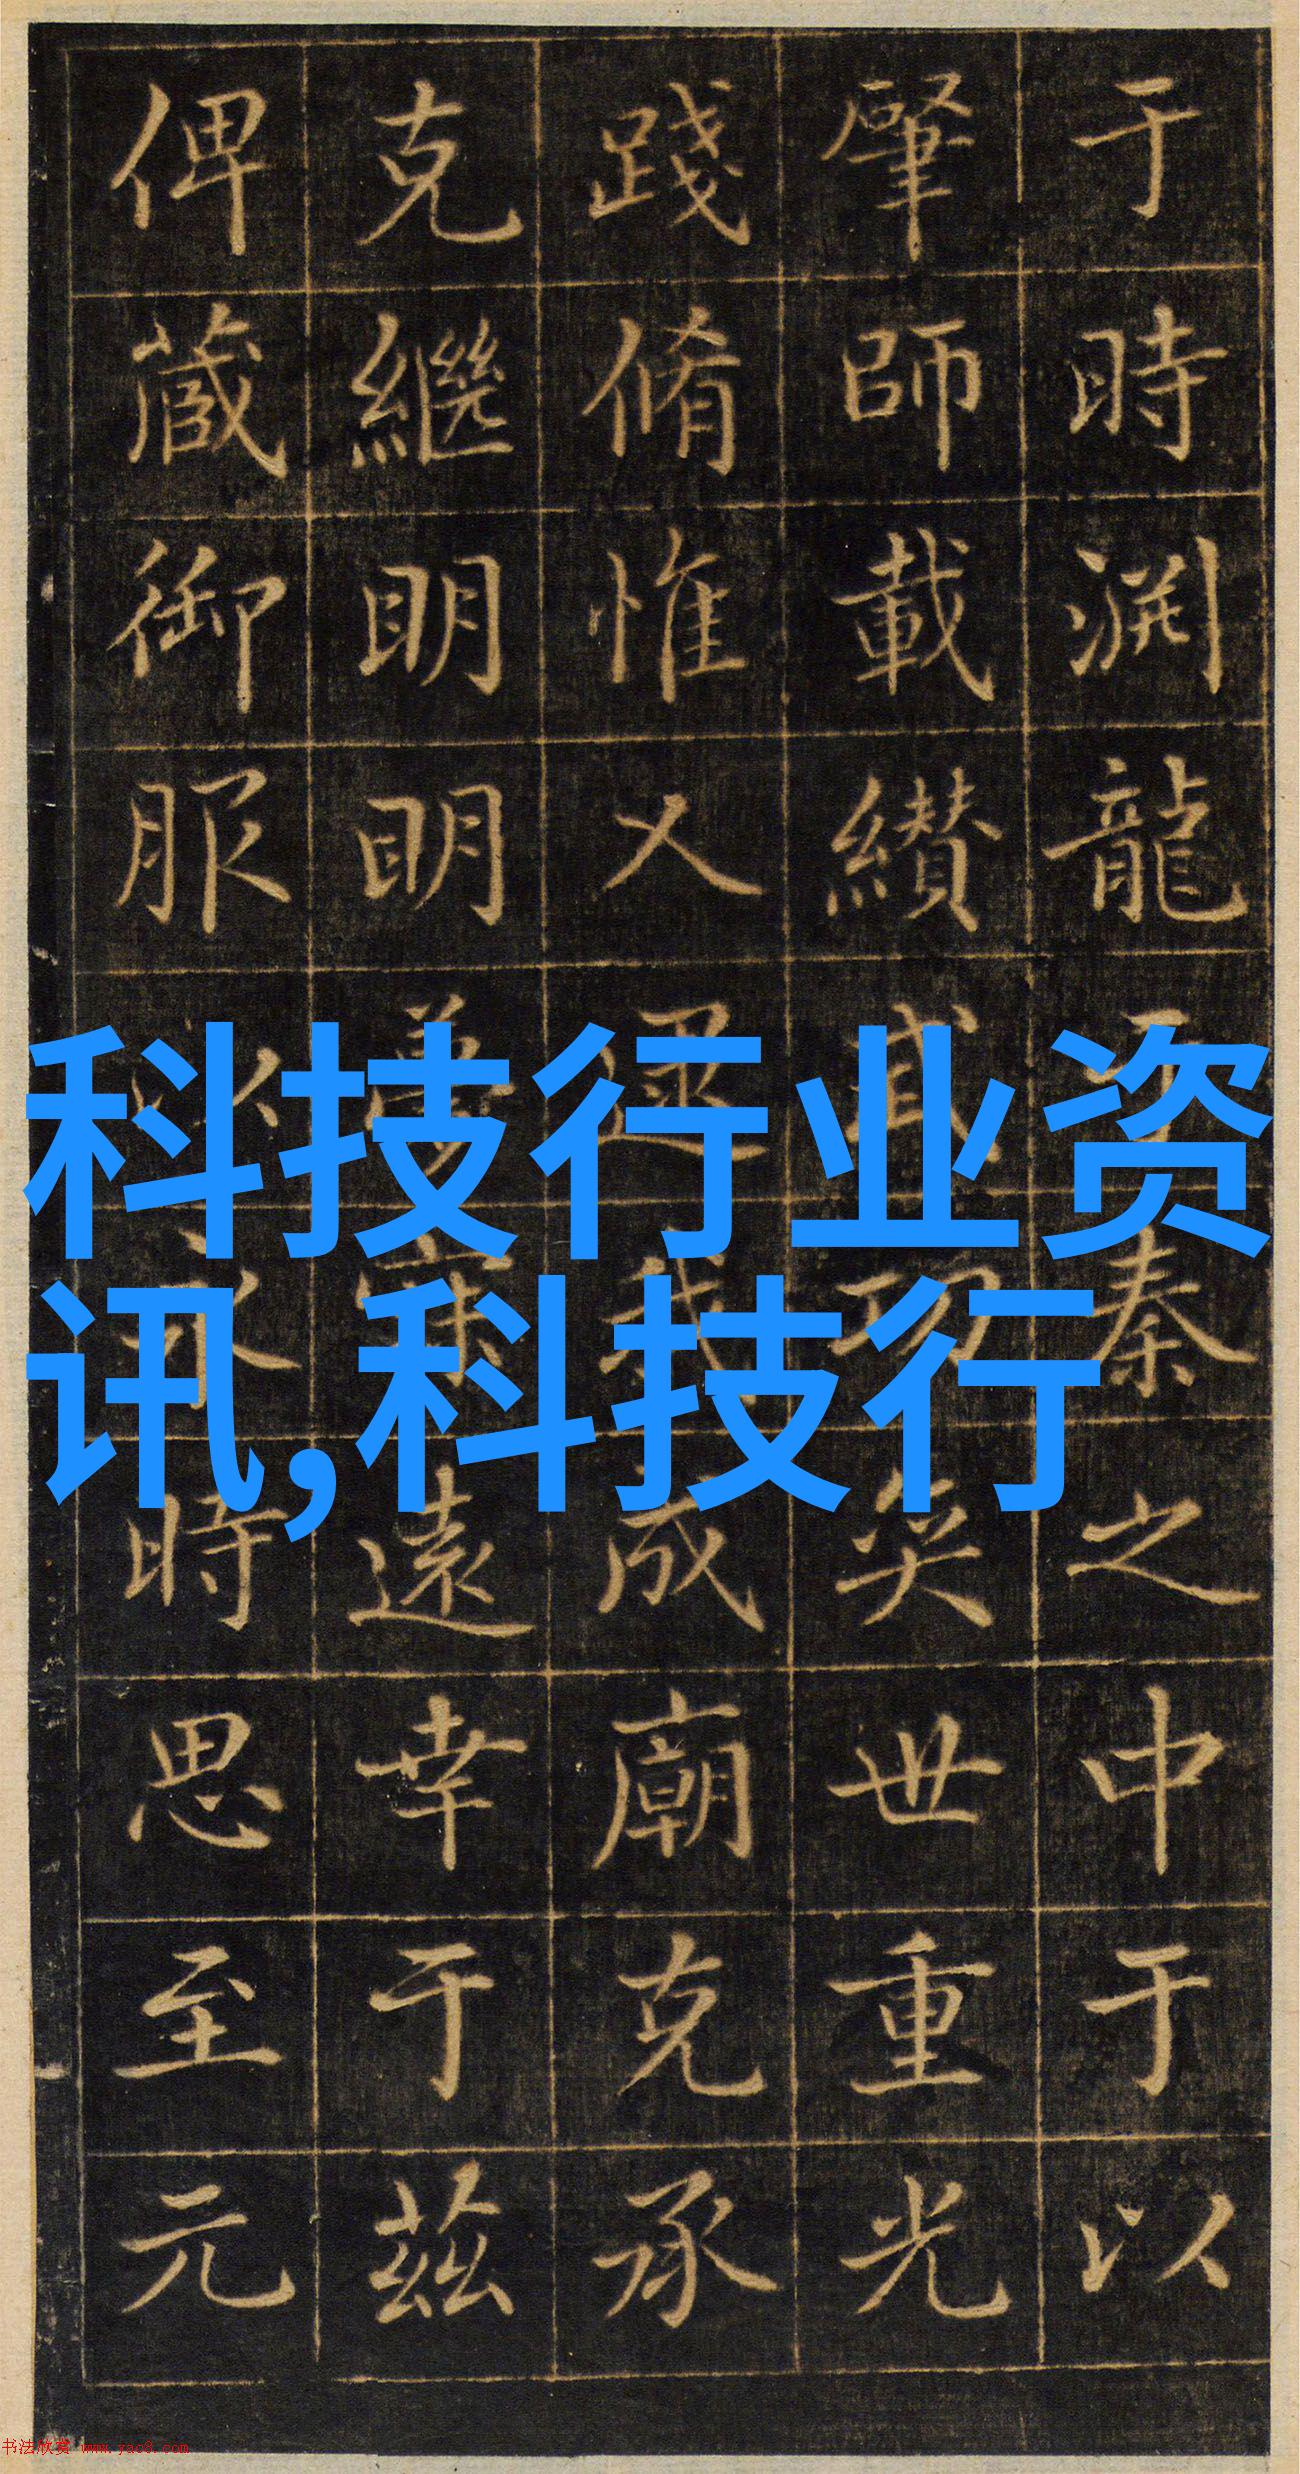 于時渊龍秦之中于以
肇師載纘武功奕世重光
踐脩惟乂我成廟克承
克繼明明夢寐遠幸于茲
俾蕆御服以永時思至元
科技行业资
讯,科技行
书法欣赏 www.yac8.com